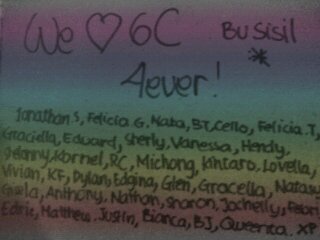 We ♡ 6C Bu Sisil
4ever!
Jonathan.S, Felicia.G, Nata, BT, Cello, Felicia.T,
Graciella, Edward, Sherly, Vanessa, Hendy,
Kornel, RC, Michong, Kintaro, Lovella,
Vivian, KF, Dylan, Edgina, Glen, Gracella,
Gisela, Anthony, Nathan, Sharon, Jochelly, Febri
Edric, Matthew, Justin, Bianca, BJ, Queenta. XP